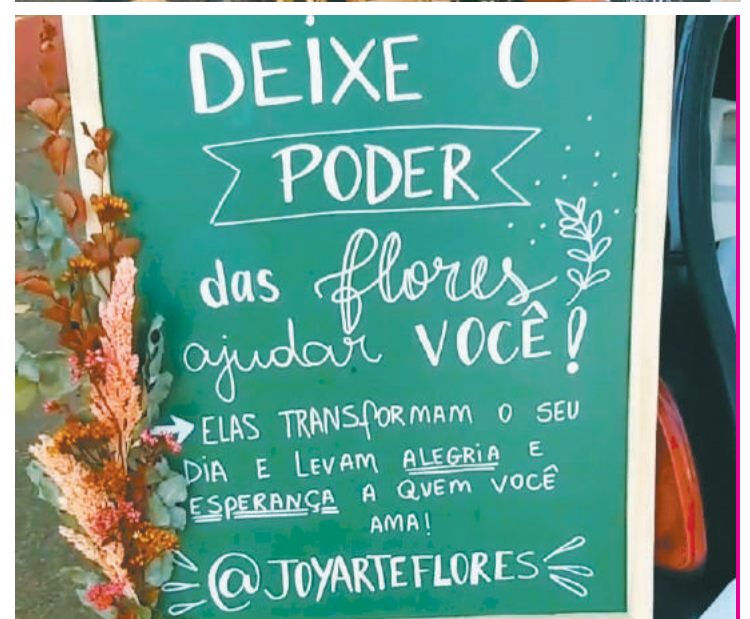 DEIXE O
PODER
das flores
ajudar VOCÊ!
ELAS TRANSFORMAM O SEU
DIA E LEVAM ALEGRIA E
ESPERANÇA A QUEM VOCÊ
AMA!
@JOYARTEFLORES